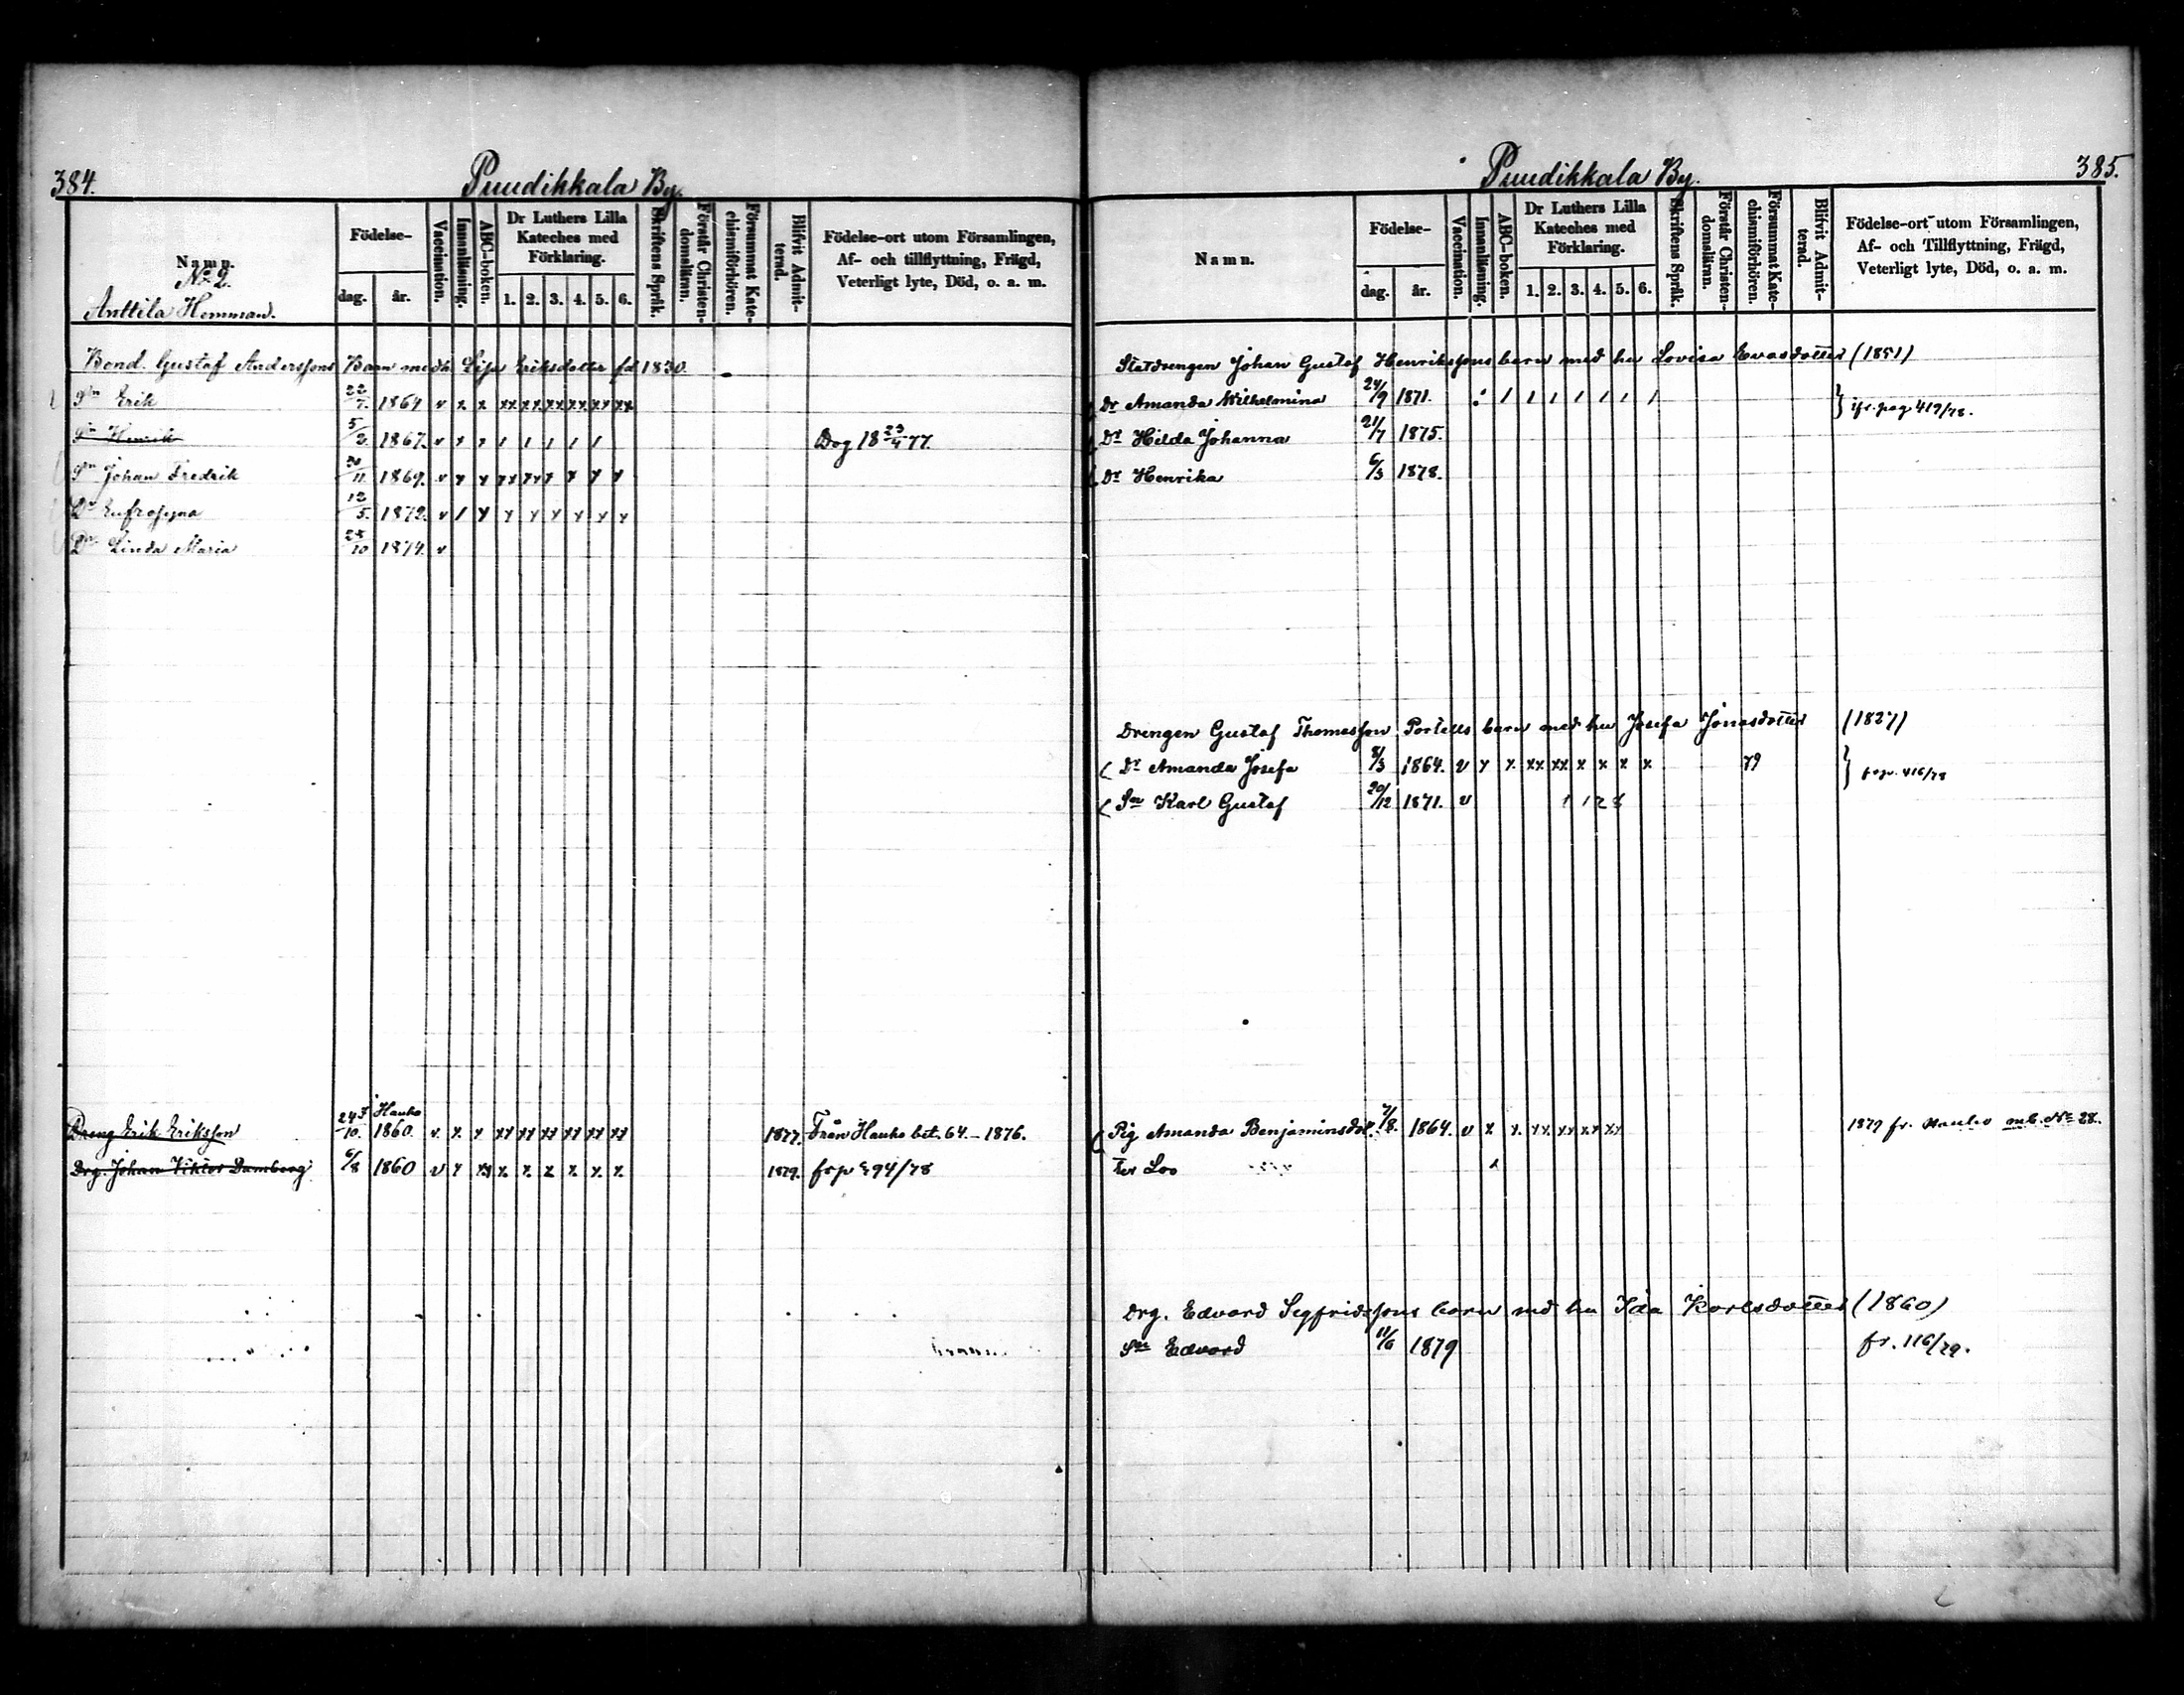 384.
Puudikkala By.
Namn.
No 2.
Anttila Hemman.
Födelse-
dag.
år.
Vaccination.
Innanläsning.
ABC-boken.
Dr Luthers Lilla Kateches med Förklaring.
1. 2. 3. 4. 5. 6.
Skriftens Språk.
Förstår Christen-domsläran.
Försummat Kate-chismiförhören.
Blifvit Admit-terad.
Födelse-ort utom Församlingen,
Af- och tillflyttning, Frägd,
Veterligt lyte, Död, o. a. m.
Bond. Gustaf Anderssons Barn med h. Lisa Eriksdotter fd 1830.
Sn Erik 22/7. 1864 v x x xx xx xx xx xx xx
Sn Henrik 5/2. 1867. v x 1 1 1 1 1 1 Dog 18 23/4 77.
Sn Johan Fredrik 11 1869. v
Dr Eufrosyna 12/5. 1872. v
Dr Linda Maria 10 1874. v
Dreng Erik Eriksson 24/10. Hauho 1860. v x x xx xx xx xx xx xx 1877. Från Hauho bet. 64. – 1876.
Drg. Johan Viktor Damberg 6/8 1860 v x xx x x x x x x 1879. 94/78
385.
Puudikkala By.
Namn.
Födelse-
dag.
år.
Vaccination.
Innanläsning.
ABC-boken.
Dr Luthers Lilla Kateches med Förklaring.
1. 2. 3. 4. 5. 6.
Skriftens Språk.
Förstår Christen-domsläran.
Försummat Kate-chismiförhören.
Blifvit Admit-terad.
Födelse-ort utom Församlingen,
Af- och Tillflyttning, Frägd,
Veterligt lyte, Död, o. a. m.
Statdrengen Johan Gustaf Henrikssons barn med hu Lovisa Evasdotter (1851)
Dr Amanda Wilhelmina 24/9 1871. 1 1 1 1 1 1 1 pag 419/78.
Dr Hilda Johanna 21/7 1875.
Dr Henrika 6/3 1878.
Drengen Gustaf Thomasson Portells barn med hu Josefa Jonasdotter (1827)
Dr Amanda Josefa 8/3 1864. v x x xx xx x x x x 79 416/78
Sn Karl Gustaf 20/12 1871. v
Pig Amanda Benjaminsdot. 7/8. 1864. v x x. xx xx xx xx 1879 fr. Hauho mb. No 28.
Drg. Edvard Segfridssons barn md hu Ida Karlsdotter (1860)
Sn Edvard 11/6 1879 fr. 116/79.